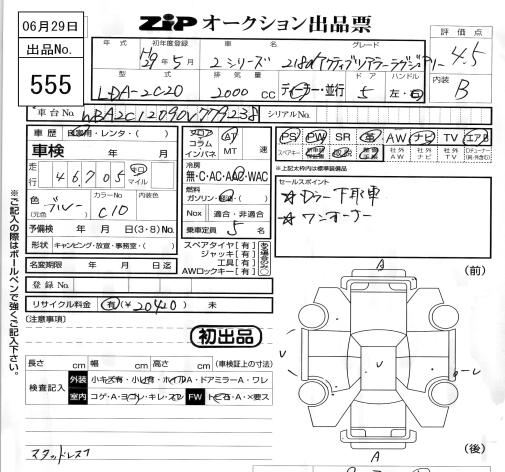 06月29日
出品No.
555
ZIP オークション出品票
年式 初年度登録 車名 グレード
H29年5月 2シリーズ 218dアクティブツアラーラグジュアリー
型式 排気量 ドア ハンドル
LDA-2C20 2000cc ディーラー・並行 5 左・右
評価点
4.5
内装
B
車台No. WBA2C12090V779238 シリアルNo.
車歴 自家用・レンタ・( )
車検 年 月
走行 46,705 キロ マイル
色 (元色) ブルー カラーNo. C10
予備検 年 月 日(3・8)No.
形状 キャンピング・放宣・事務室・( )
名変期限 年 月 日迄
登録No.
リサイクル料金 有(¥20410) 未
(注意事項)
フロア コラム インパネ AT MT 速
冷房
無・C・AC・AAC・WAC
燃料
ガソリン・軽油・( )
Nox 適合・非適合
乗車定員 5名
スペアタイヤ[有]
ジャッキ[有]
工具[有]
AWロックキー[有]
PS PW SR 革 AW ナビ TV エアB
スペアキー 社外AW 社外ナビ 社外TV
*上記太枠内は標準装備品
セールスポイント
☆Dラー下取車
☆ワンオーナー
初出品
長さ cm 幅 cm 高さ cm (車検証上の寸法)
検査記入 外装 小キズ有・小ヒ有・ホイルA・ドアミラーA・ワレ
室内 コゲ・A・ヨゴレ・キレ・スレ FW トビ石・A・×要ス
スタッドレス
(前)
A
A
(後)
※ご記入の際はボールペンで強くご記入下さい。